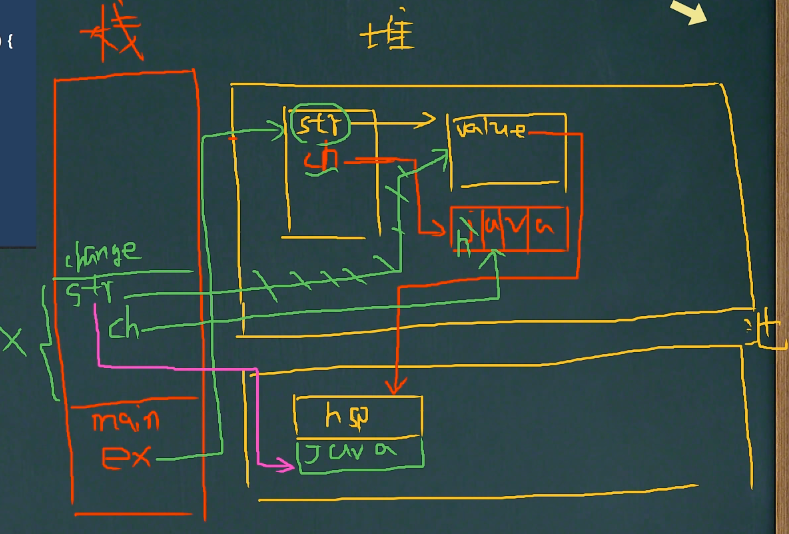 ) {
栈
堆
str
ch
value
j a v a
h
change
str
ch
x
main
ex
hsp
java